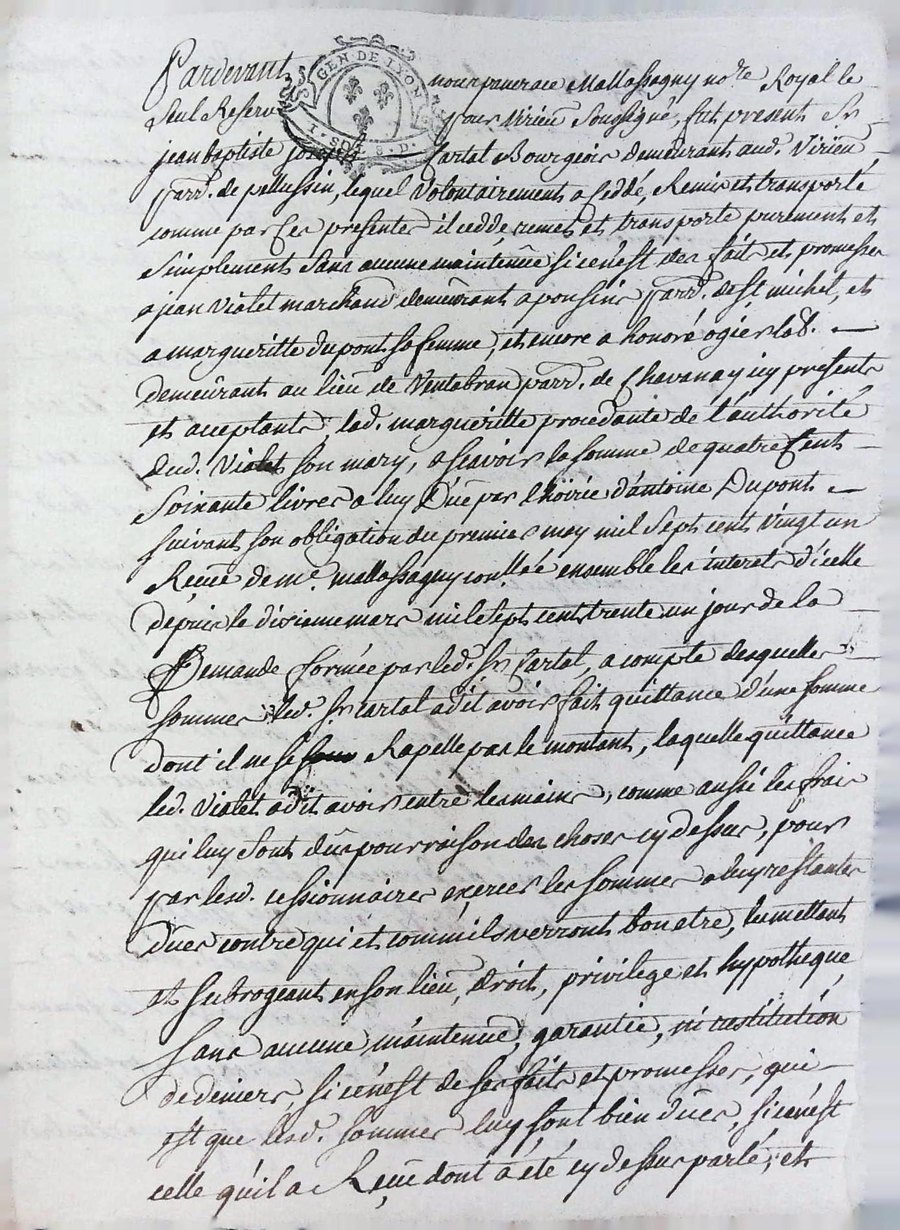 Pardevant nous pancrace Mallassagny no.re Royal le
Seul Reservé pour Virieu Soussigné, fut present Sr
jean baptiste Cartal Bourgeois demeurant aud. Virieu
parr. de pellussin, lequel volontairement a Ceddé, Remis et transporté
comme par Ces presentes il cedde remet et transporte purement et
Simplement Sans aucune maintenüe si ce n'est des faits et promesses
a jean Violet marchand demeurant a poussin parr. de st michel, et
a margueritte dupont sa femme, et encore a honoré ogier lab.
demeurant au lieu de Ventabran parr. de Chavanay icy presents
et acceptants, lad. margueritte procedante de l'authorité
dud. Violet son mary, a scavoir la somme de quatre Cent
Soixante livres a luy Düe par l'hoirie d'antoine Dupont
suivant son obligation du premier may mil Sept cent Vingt un
Reçüe de me. mallassagny ensemble les interets d'icelle
depuis le dixieme mars mil Sept cent trente un jour de la
Demande formée par led. Sr Cartal, a compte desquelles
sommes led. Sr cartal a dit avoir fait quittance d'une somme
dont il ne se Rapelle pas le montant, laquelle quittance
led. Violet a dit avoir entre les mains, comme aussi les frais
qui luy sont düs pour raison des choses cy dessus, pour
par lesd. cessionnaires exercer les sommes a luy restantes
Dües contre qui et comm'ils verront bon etre, les mettant
et Subrogeant en son lieu, droit, privilege et hypotheque
sans aucune maintenüe, garantie, ni restitution
de deniers, si ce n'est de ses faits et promesses, qui
est que lesd. sommes luy sont bien dües, si ce n'est
celle qu'il a Reçüe dont a été cy dessus parlé; et
GEN DE LYON
1. SOL 8. D.